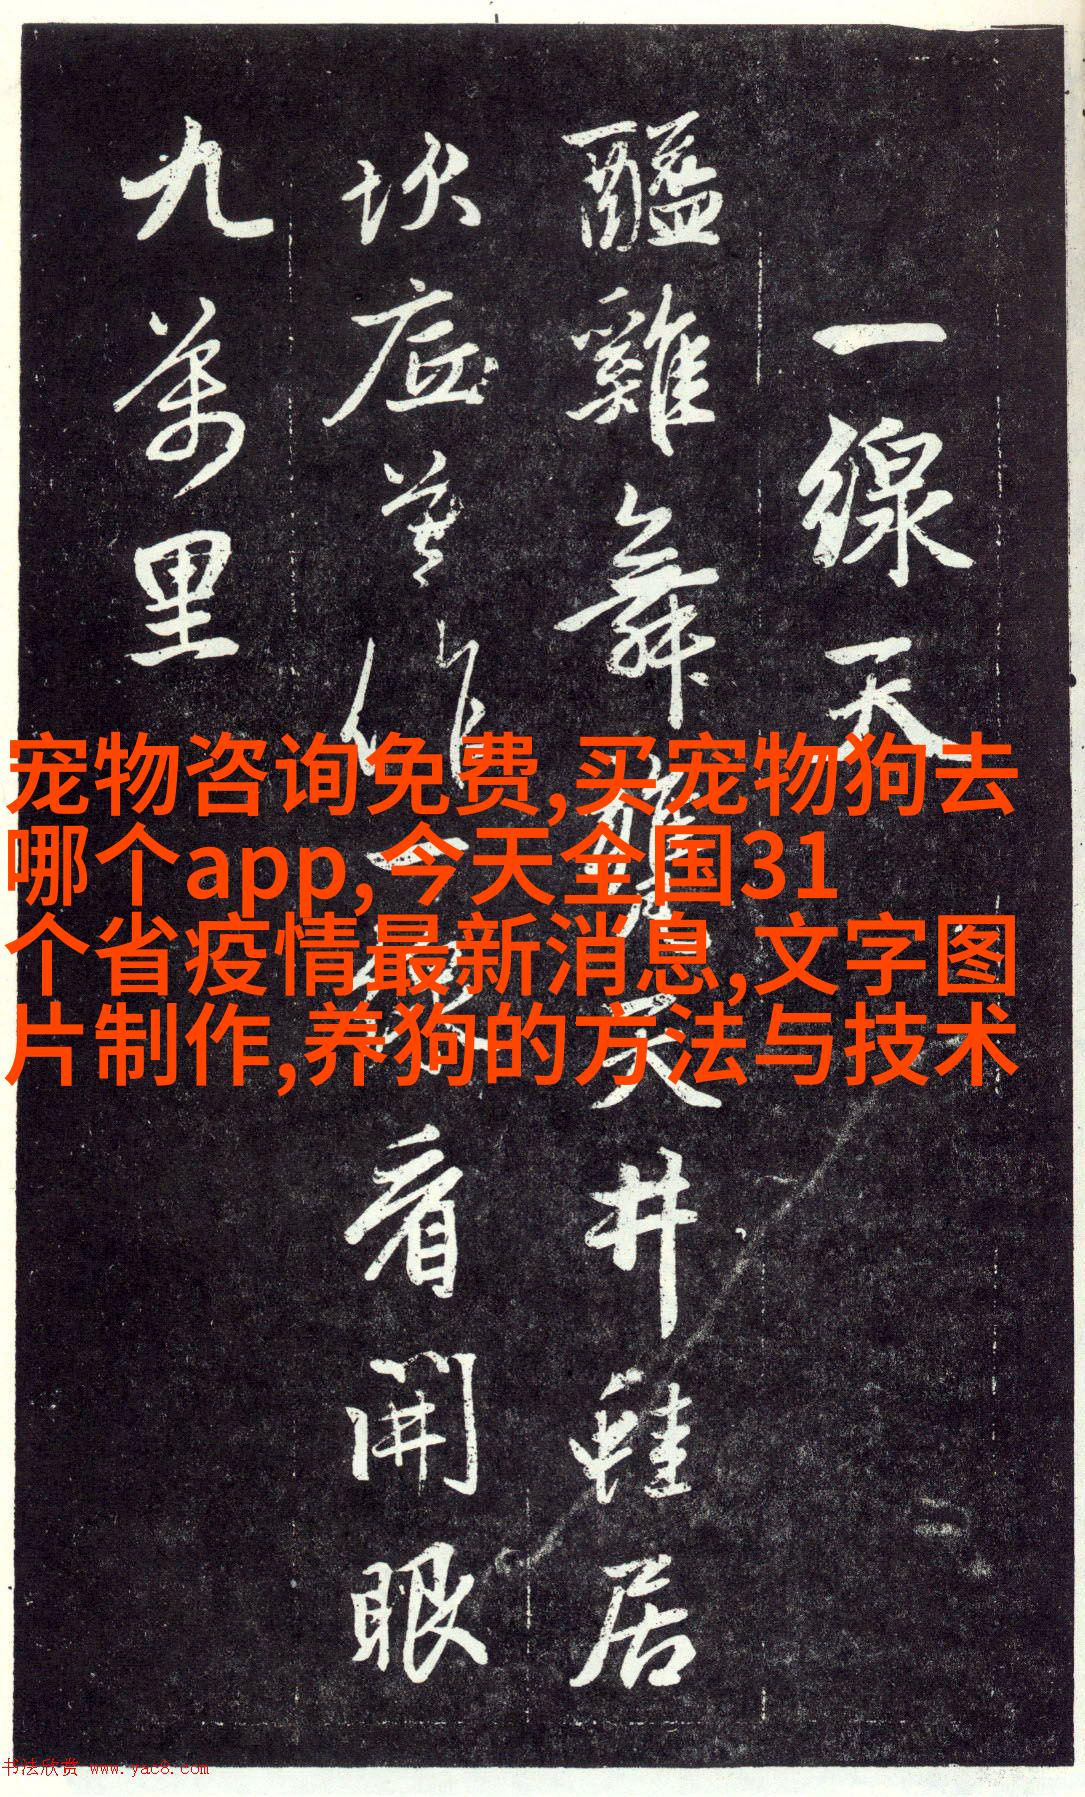 一線天
醯雞舞甕天井蛙居
坎底莫作一線看開眼
九萬里
宠物咨询免费,买宠物狗去
哪个app,今天全国31
个省疫情最新消息,文字图
片制作,养狗的方法与技术
书法欣赏 www.yac8.com